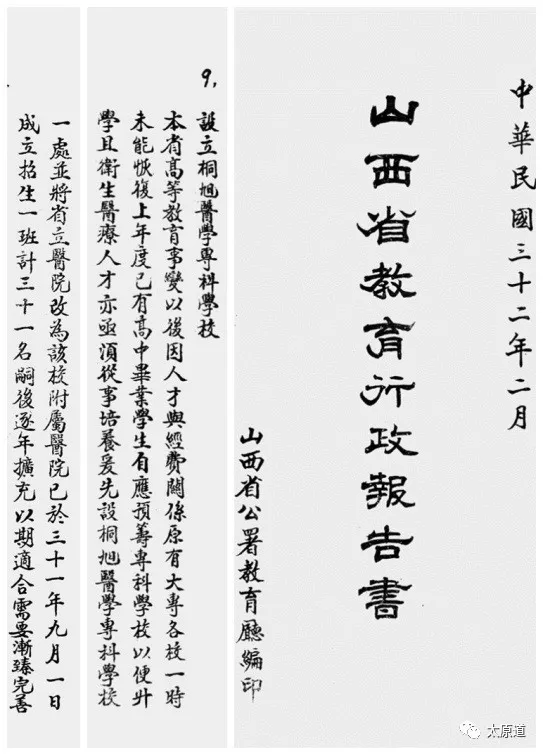 中華民國三十二年二月
山西省教育行政報告書
山西省公署教育廳編印
9,
設立桐旭醫學專科學校
本省高等教育事變以後因人才與經費關係原有大專各校一時
未能恢復上年度已有高中畢業學生自應預籌專科學校以便升
學且衛生醫療人才亦亟須從事培養爰先設桐旭醫學專科學校
一處並將省立醫院改為該校附屬醫院已於三十一年九月一日
成立招生一班計三十一名嗣後逐年擴充以期適合需要漸臻完善
太原道